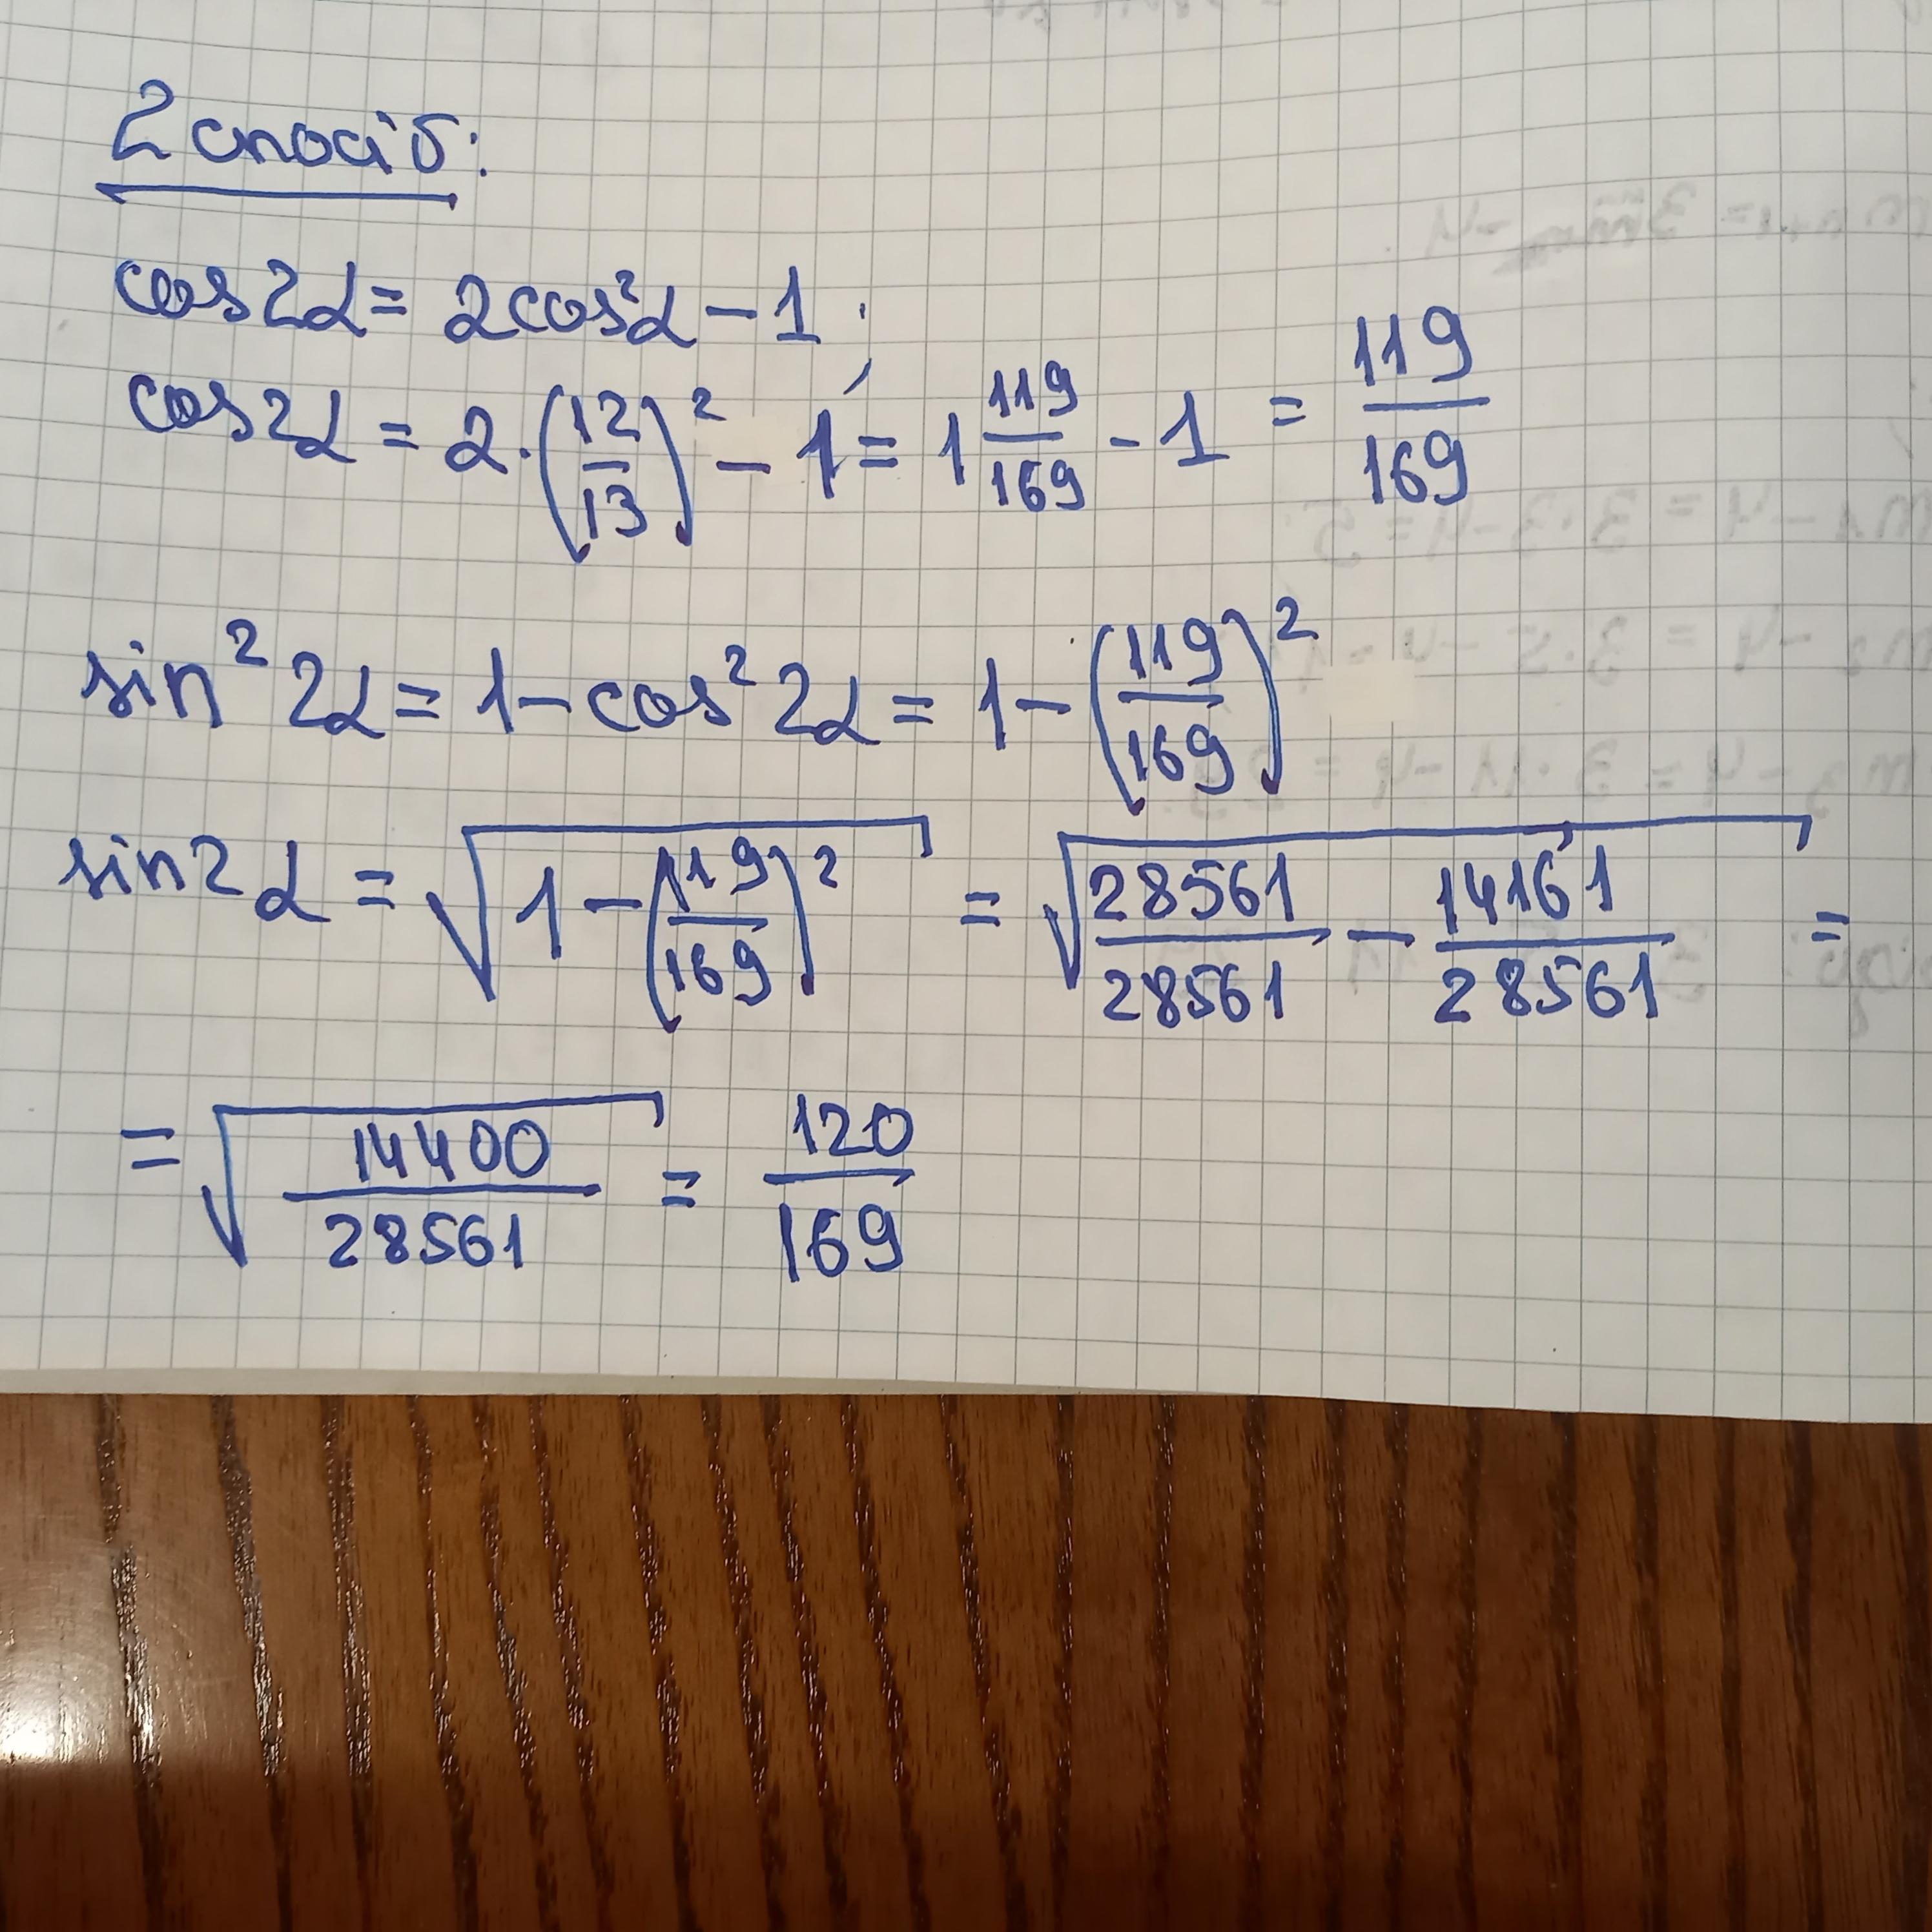 2 спосіб:
cos2α = 2cos²α − 1;
cos2α = 2·(12/13)² − 1 = 1 119/169 − 1 = 119/169
sin² 2α = 1 − cos² 2α = 1 − (119/169)²
sin2α = √(1 − (119/169)²) = √(28561/28561 − 14161/28561) =
= √(14400/28561) = 120/169